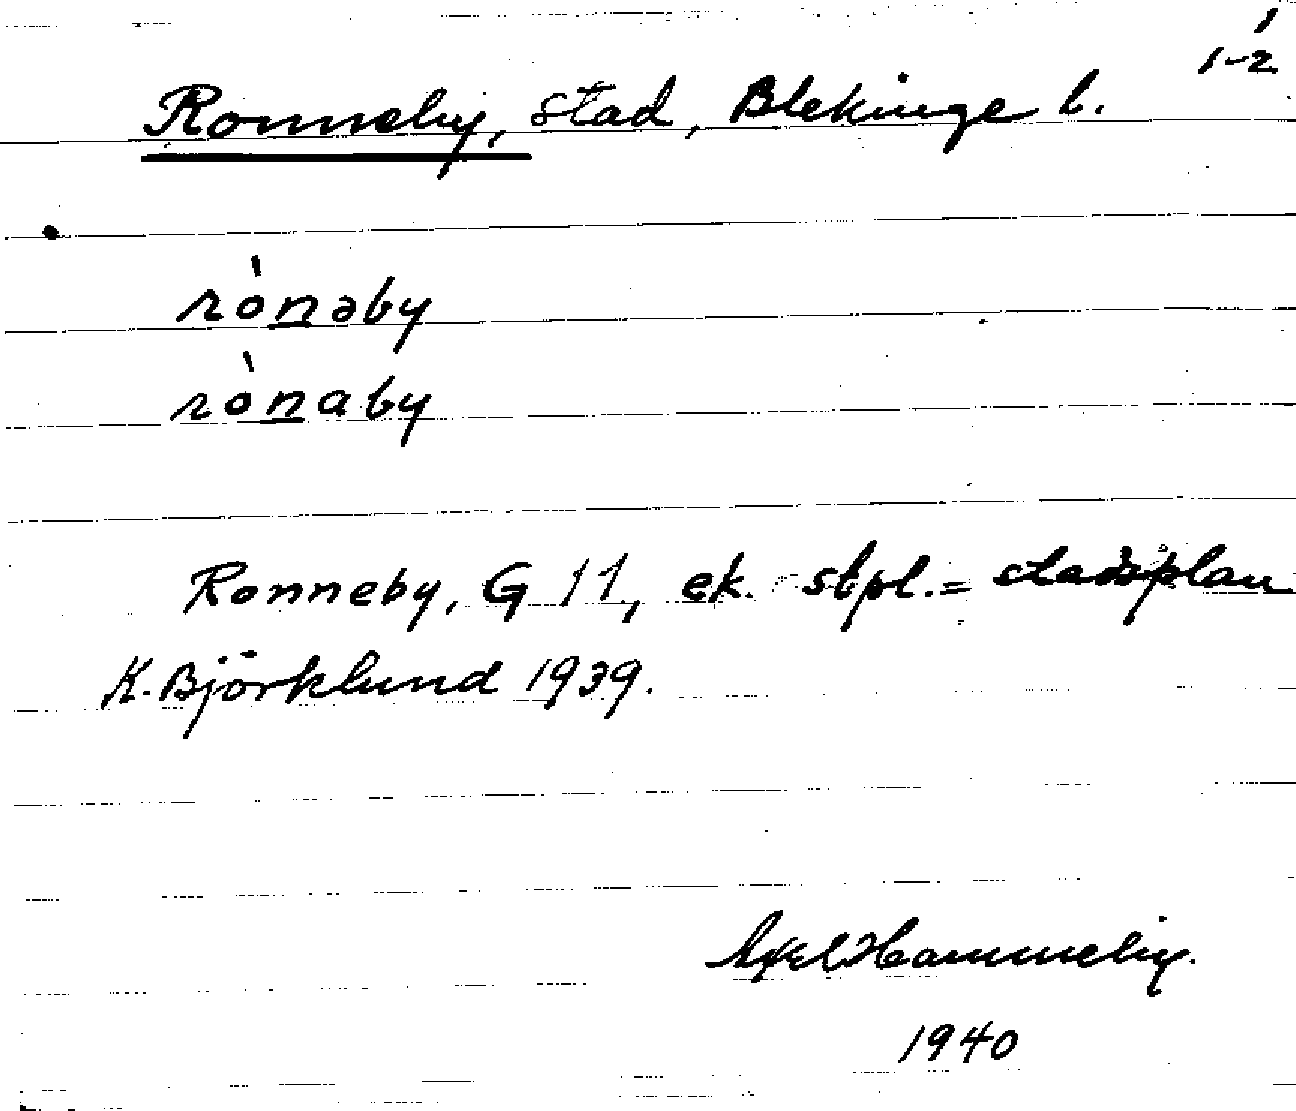 1
1-2
Ronneby, stad, Blekinge l.
rònəby
rònaby
Ronneby, G 11, ek. stpl. = stadsplan
K. Björklund 1939.
Axel Hammeby.
1940